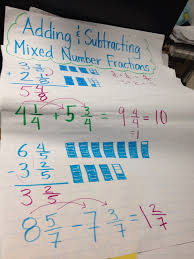 Adding & Subtracting
Mixed Number Fractions
+ 2
5
4 1/4 + 5 3/4 = 9 4/4 = 10
= 1
6 4/5
- 3 2/5
3 2/5
8 5/7 - 7 3/7 = 1 2/7